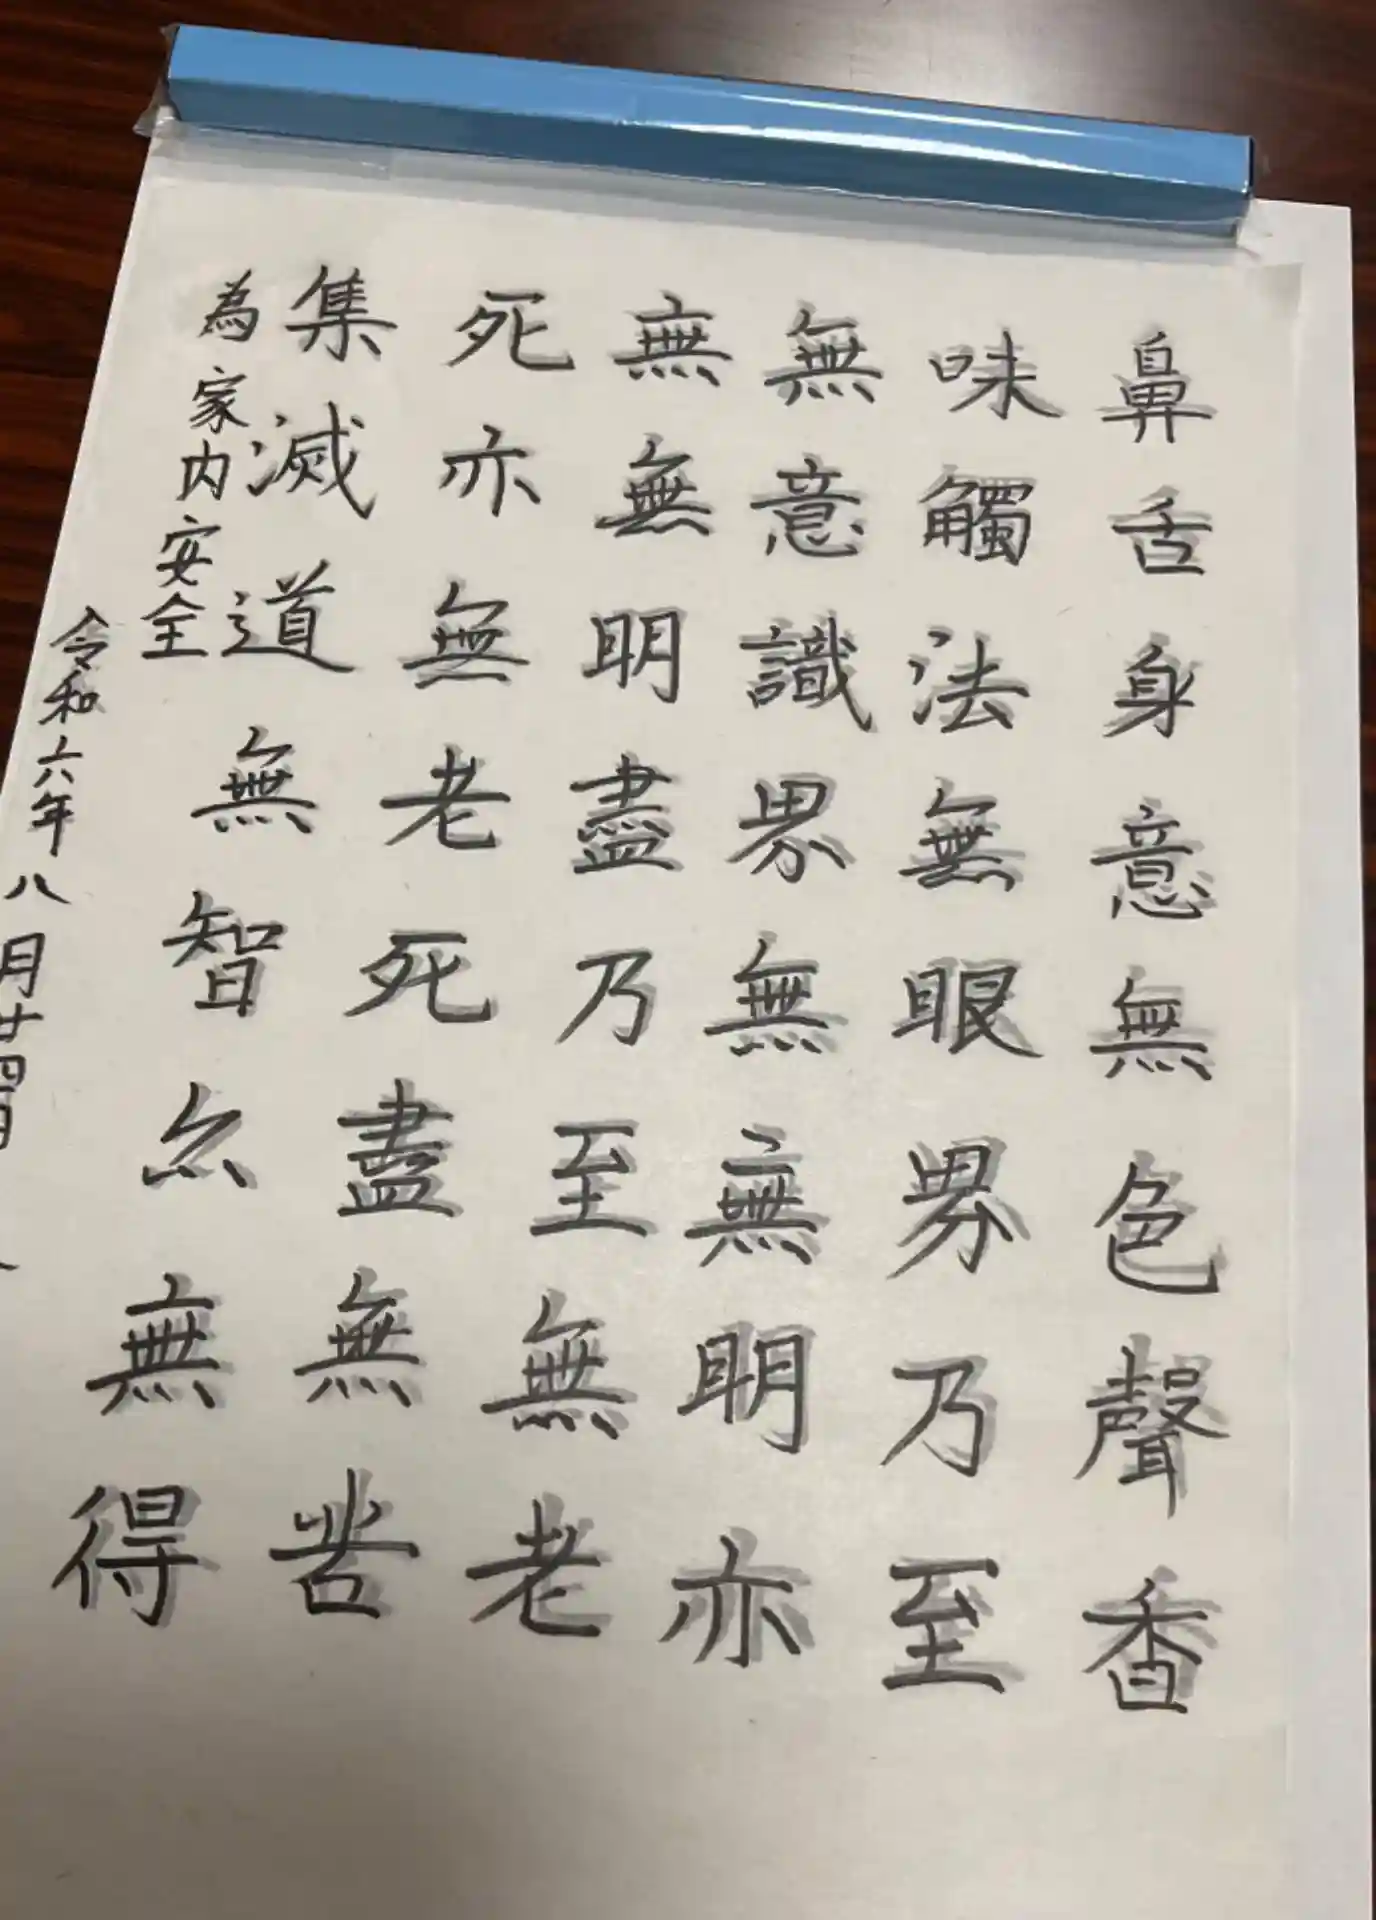 鼻舌身意無色聲香
味觸法無眼界乃至
無意識界無無明亦
無無明盡乃至無老
死亦無老死盡無苦
集滅道無智亦無得
為家内安全
令和六年八月廿四日